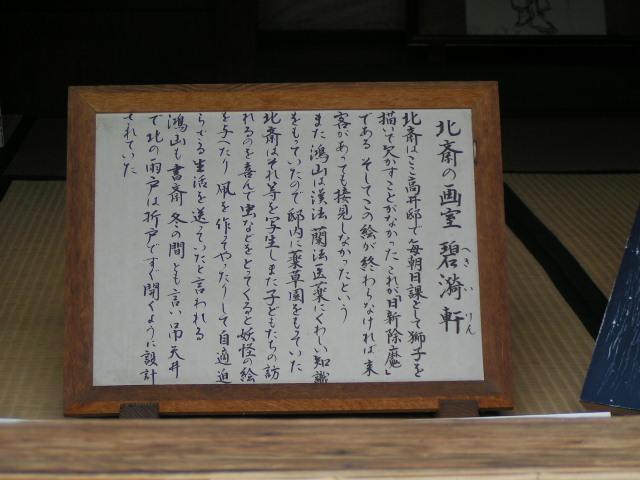 北斎の画室 碧漪軒
へきいけん
北斎はここ高井邸で毎朝日課として獅子を
描いて欠かすことがなかった これが「日新除魔」
である そしてこの絵が終わらなければ来
客があっても接見しなかったという
また鴻山は漢法 蘭法医薬にくわしい知識
をもっていたので邸内に薬草園をもっていた
北斎はそれ等を写生しまた子どもたちの訪
れるのを喜んで虫などをとってくると妖怪の絵
を与へたり 凧を作ってやったりして自適迫
らざる生活を送っていたと言われる
鴻山も書斎 冬の間とも言い 吊天井
で北の雨戸は折戸ですぐ開くように設計
されていた